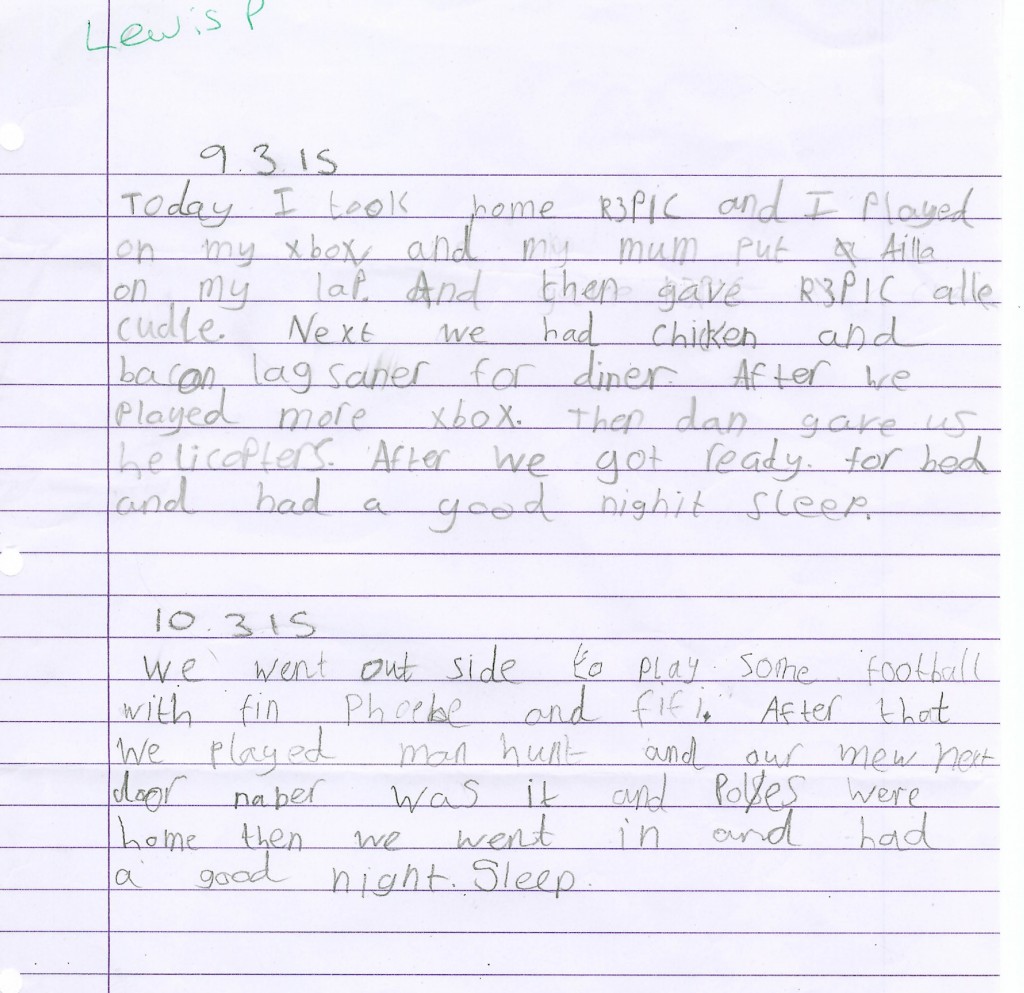 Lewis P
9.3.15
Today I took home R3PIC and I Played
on my xbox and my mum put Ailla
on my lap. And then gave R3PIC alle
cudle. Next we had chicken and
bacon lagsaner for diner. After we
Played more xbox. Then dan gave us
helicopters. After we got ready. for bed
and had a good nighit sleep.
10.3.15
We went out side to play some football
with fin Phoebe and fifi. After that
We played man hunt and our mew next
door naber was it and were
home then we went in and had
a good night. Sleep.